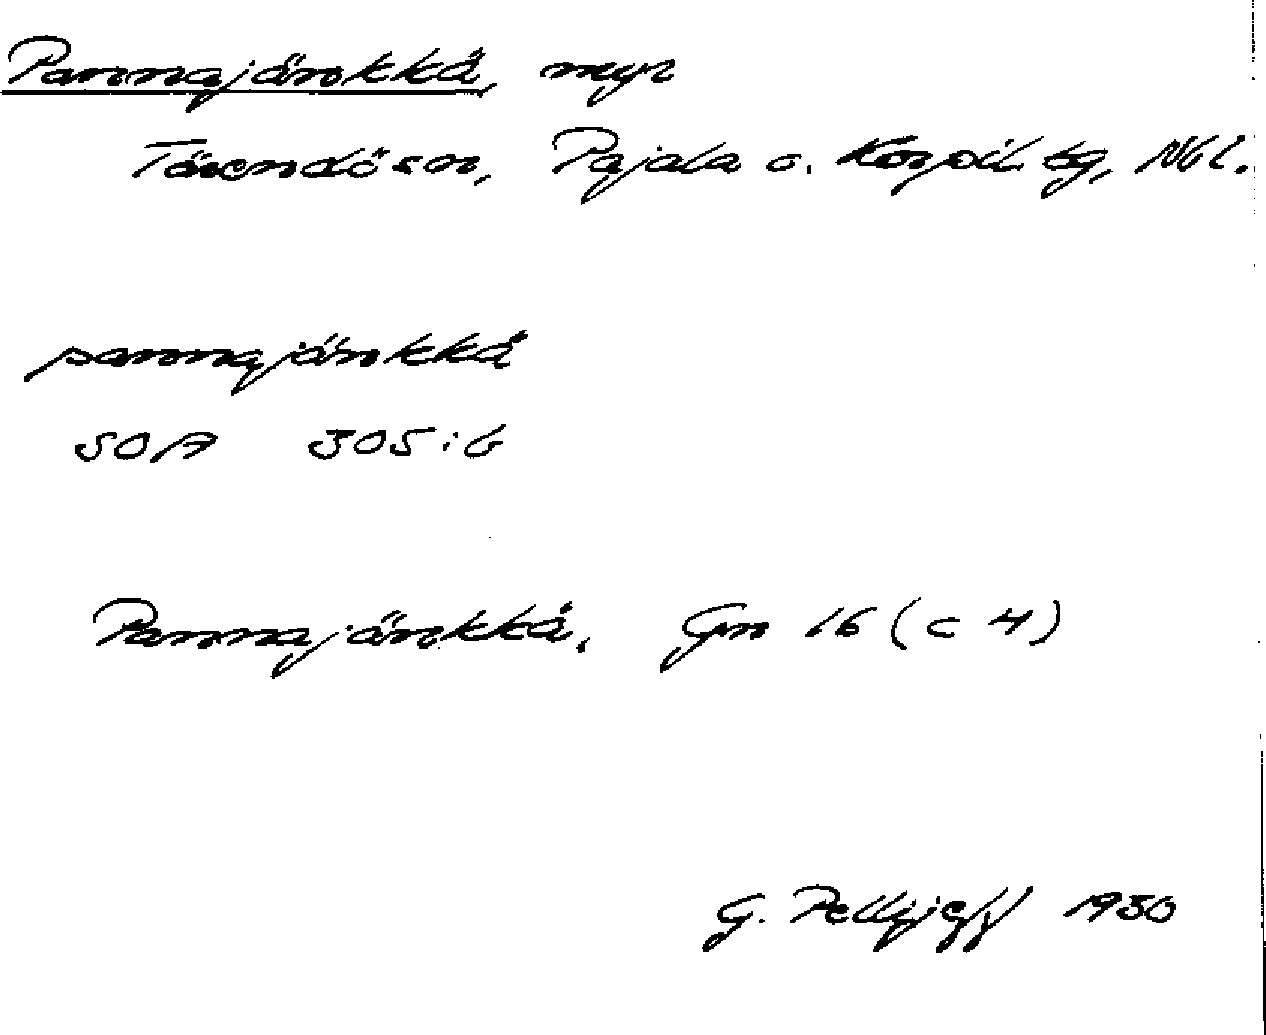 Pannajänkkä, myr
Tärendö sn, Pajala o. Korpil. tg, Nbl.
pannajänkkä
SOA 305:6
Pannajänkkä, Gn 16 (c 4)
G. Pellijeff 1950